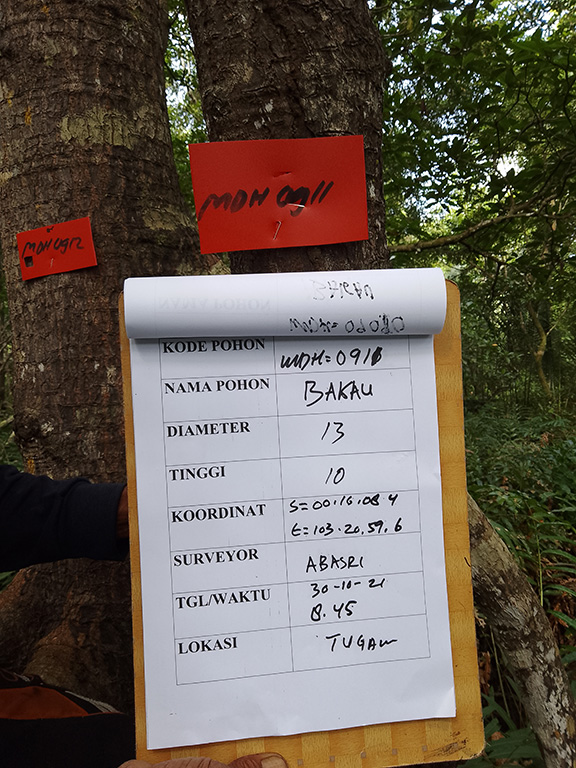 MDH 0911
MDH 0912
KODE POHON MDH=0911
NAMA POHON BAKAU
DIAMETER 13
TINGGI 10
KOORDINAT S=00.16.08.4
E=103.20.59.6
SURVEYOR ABASRI
TGL/WAKTU 30-10-21
8.45
LOKASI TUGAW